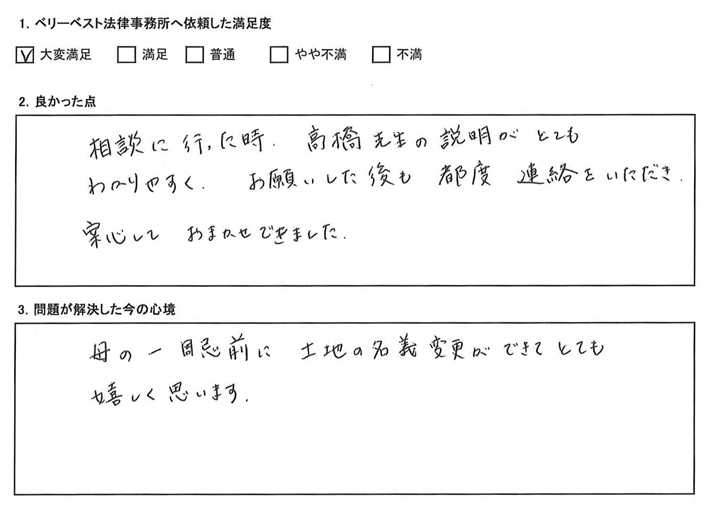 1. ベリーベスト法律事務所へ依頼した満足度
☑ 大変満足 □ 満足 □ 普通 □ やや不満 □ 不満
2. 良かった点
相談に行った時、高橋先生の説明がとても
わかりやすく、お願いした後も都度連絡をいただき、
安心しておまかせできました。
3. 問題が解決した今の心境
母の一周忌前に土地の名義変更ができてとても
嬉しく思います。